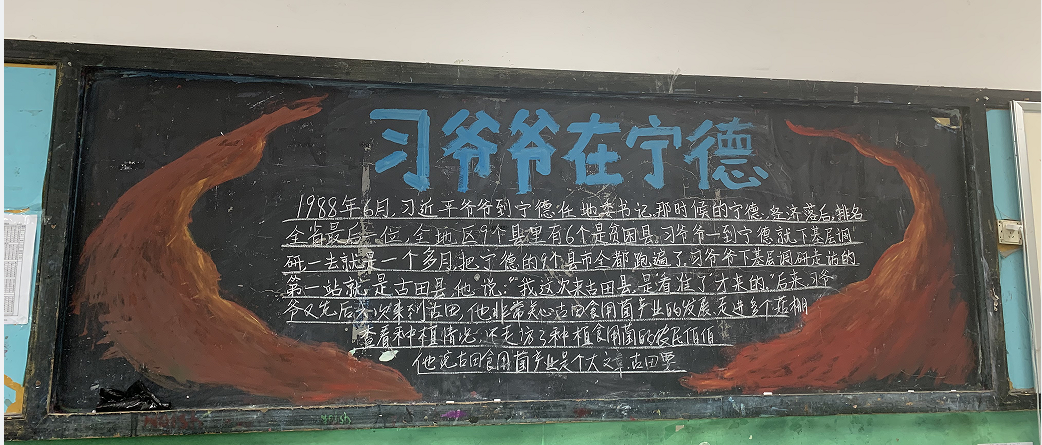 习爷爷在宁德
1988年6月,习近平爷爷到宁德任地委书记,那时候的宁德,经济落后,排名
全省最后一位,全地区9个县里有6个是贫困县,习爷爷一到宁德就下基层调
研,一去就是一个多月,把宁德的9个县市全都跑遍了,习爷爷下基层调研走访的
第一站就是古田县,他说,“我这次来古田县,是看准了才来的,”后来,习爷
爷又先后 次来到古田,他非常关心古田食用菌产业的发展,走进多个菇棚
查看种植情况,还走访了种植食用菌的农民伯伯
他说古田食用菌产业是个大文章,古田要